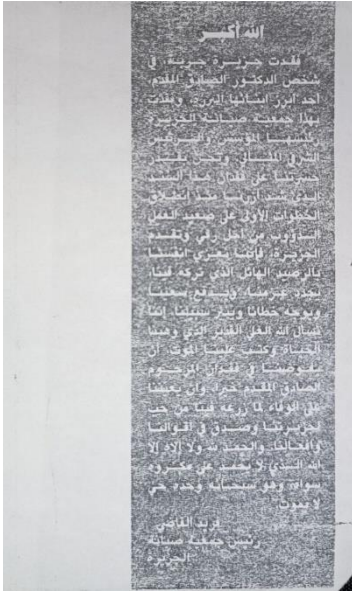 الله أكبر
فقدت جزيرة جربة، في
شخص الدكتور الصادق المقدم،
احد ابرز ابنائها البررة، وفقدت
بهذا جمعية صيانة الجزيرة
المؤسس والرئيس
الشرفي المثالي ونحن
على فقدان هذا السند
الذي منذ انطلاق
الخطوات الأولى على صعيد العمل
الدؤوب من اجل رقي وتقدم
الجزيرة، فإننا نعزي انفسنا
بالرصيد الهائل الذي تركه فينا،
ويدفع سعينا
ويوجه خطانا وينير سبيلنا إننا
نسأل الله العلي القدير الذي وهبنا
الحياة وكتب علينا الموت أن
في فقدان المرحوم
الصادق المقدم خيرا، وأن يعيننا
على الوفاء لما زرعه فينا من حب
لجزيرتنا وصدق في اقوالنا
وأفعالنا، والحمد لله ولا إلاه إلا
الله الذي لا يحمد على مكروه
سواه، وهو سبحانه وحده حي
لا يموت
فريد القاضي
رئيس جمعية صيانة
الجزيرة